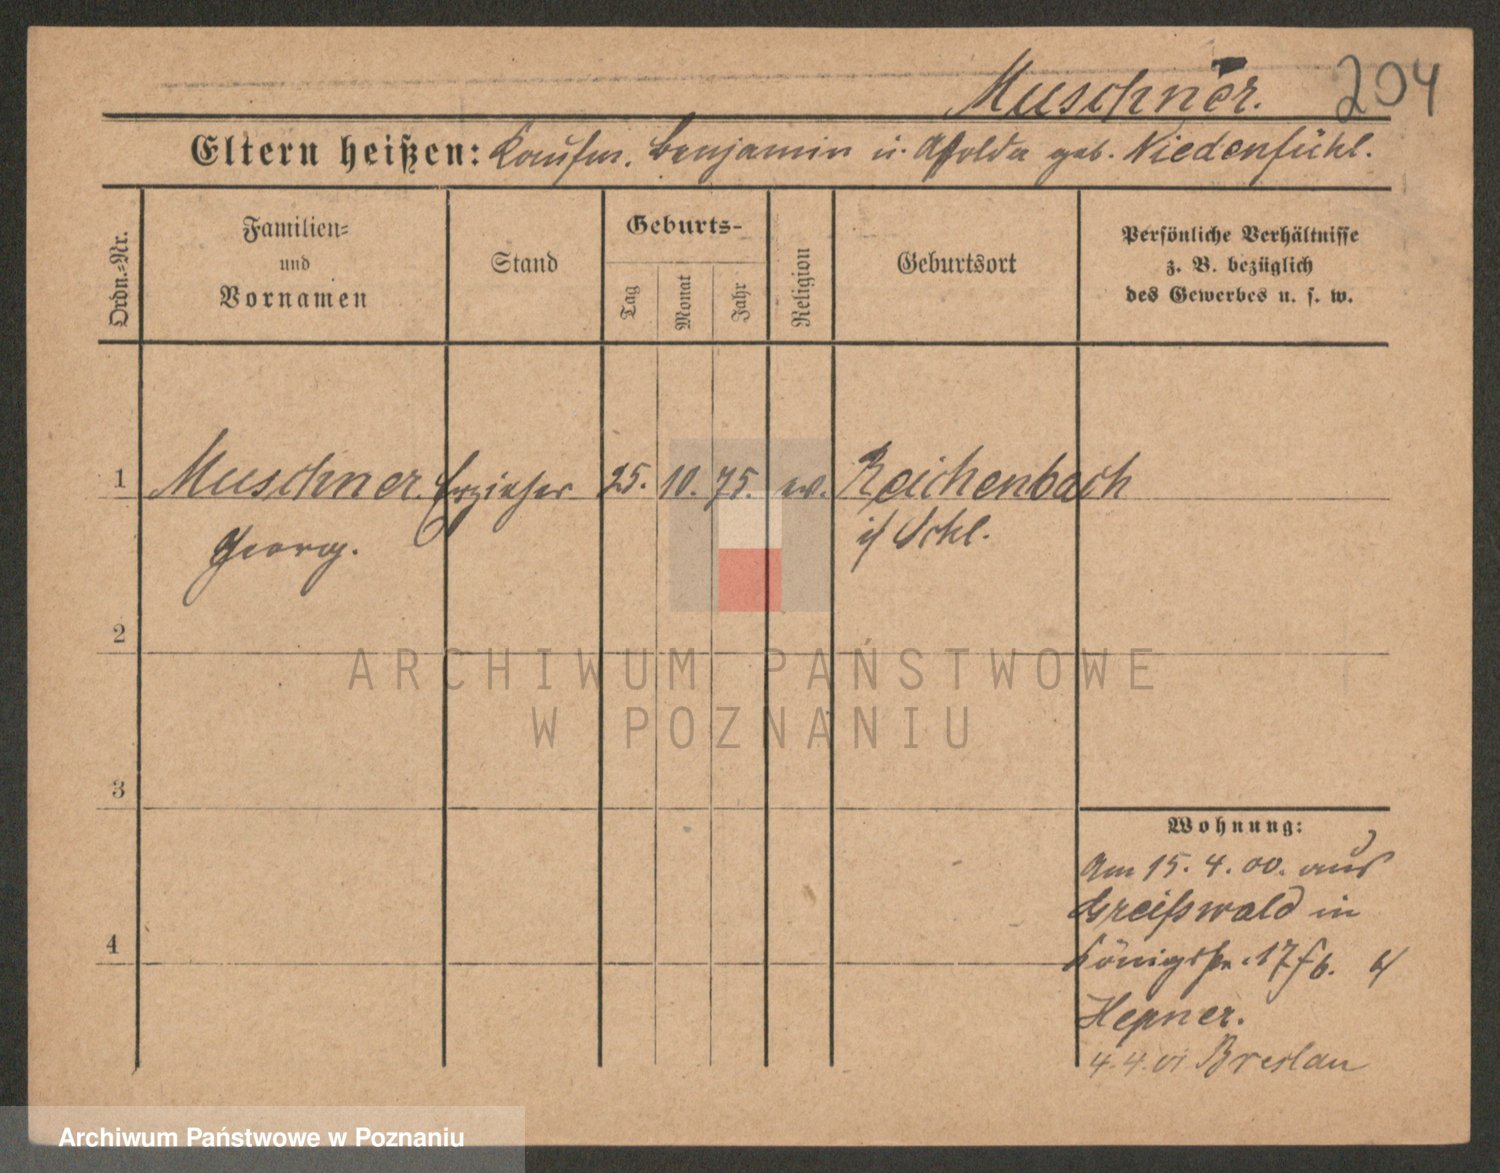 Muschner. 204
Eltern heißen: Kaufm. Benjamin u. geb. Niedenführ.
Ordn.=Nr.
Familien=
und
Vornamen
Stand
Geburts-
Tag
Monat
Jahr
Religion
Geburtsort
Persönliche Verhältnisse
z. B. bezüglich
des Gewerbes u. s. w.
1 Muschner. Erzieher 25. 10. 75. ev. Reichenbach
Georg. i/ Schl.
2
ARCHIWUM PAŃSTWOWE
W POZNANIU
3
Wohnung:
Am 15. 4. 00. aus
Greifswald in
4
Königstr. 17 b.
Hepner.
4. 4. 01 Breslau
Archiwum Państwowe w Poznaniu